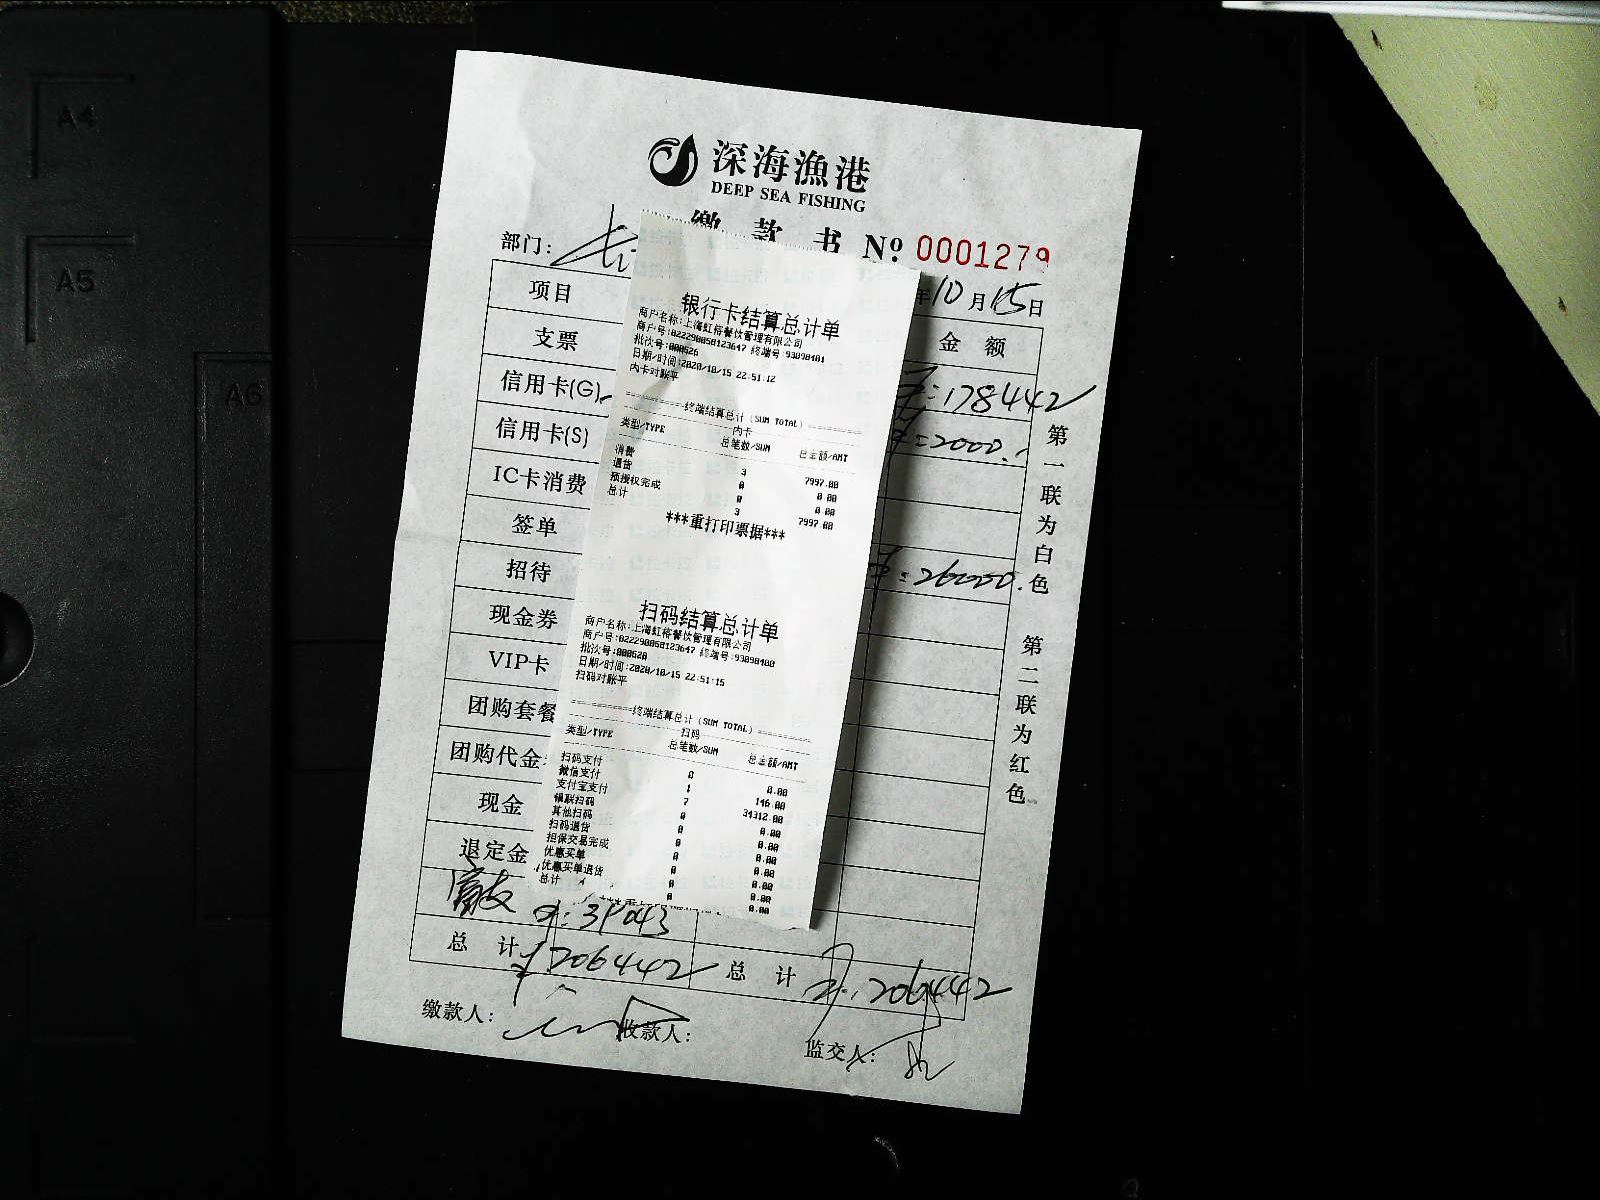 A4
A5
A6
深海漁港
DEEP SEA FISHING
缴款书 Nº 0001279
部门:
年10月15日
项目
金额
支票
信用卡(G)
¥:178442
信用卡(S)
¥:2000.
IC卡消费
签单
招待
¥:26000.
现金券
VIP卡
团购套餐
团购代金
现金
退定金
总计 ¥:206442
总计 ¥:206442
缴款人:
收款人:
监交人:
第一联为白色
第二联为红色
银行卡结算总计单
商户名称:上海虹裕餐饮管理有限公司
商户号:822290058123647 终端号:93098401
批次号:000526
日期/时间:2020/10/15 22:51:12
内卡对账平
==========终端结算总计(SUM TOTAL)==========
内卡
类型/TYPE 总笔数/SUM 总金额/AMT
消费 3 7997.00
退货 0 0.00
预授权完成 0 0.00
总计 3 7997.00
***重打印票据***
扫码结算总计单
商户名称:上海虹裕餐饮管理有限公司
商户号:822290058123647 终端号:93098400
批次号:000520
日期/时间:2020/10/15 22:51:15
扫码对账平
==========终端结算总计(SUM TOTAL)==========
扫码
类型/TYPE 总笔数/SUM 总金额/AMT
扫码支付 0 0.00
微信支付 1 146.00
支付宝支付 7 34312.00
银联扫码 0 0.00
其他扫码 0 0.00
扫码退货 0 0.00
担保交易完成 0 0.00
优惠买单 0 0.00
优惠买单退货 0 0.00
总计